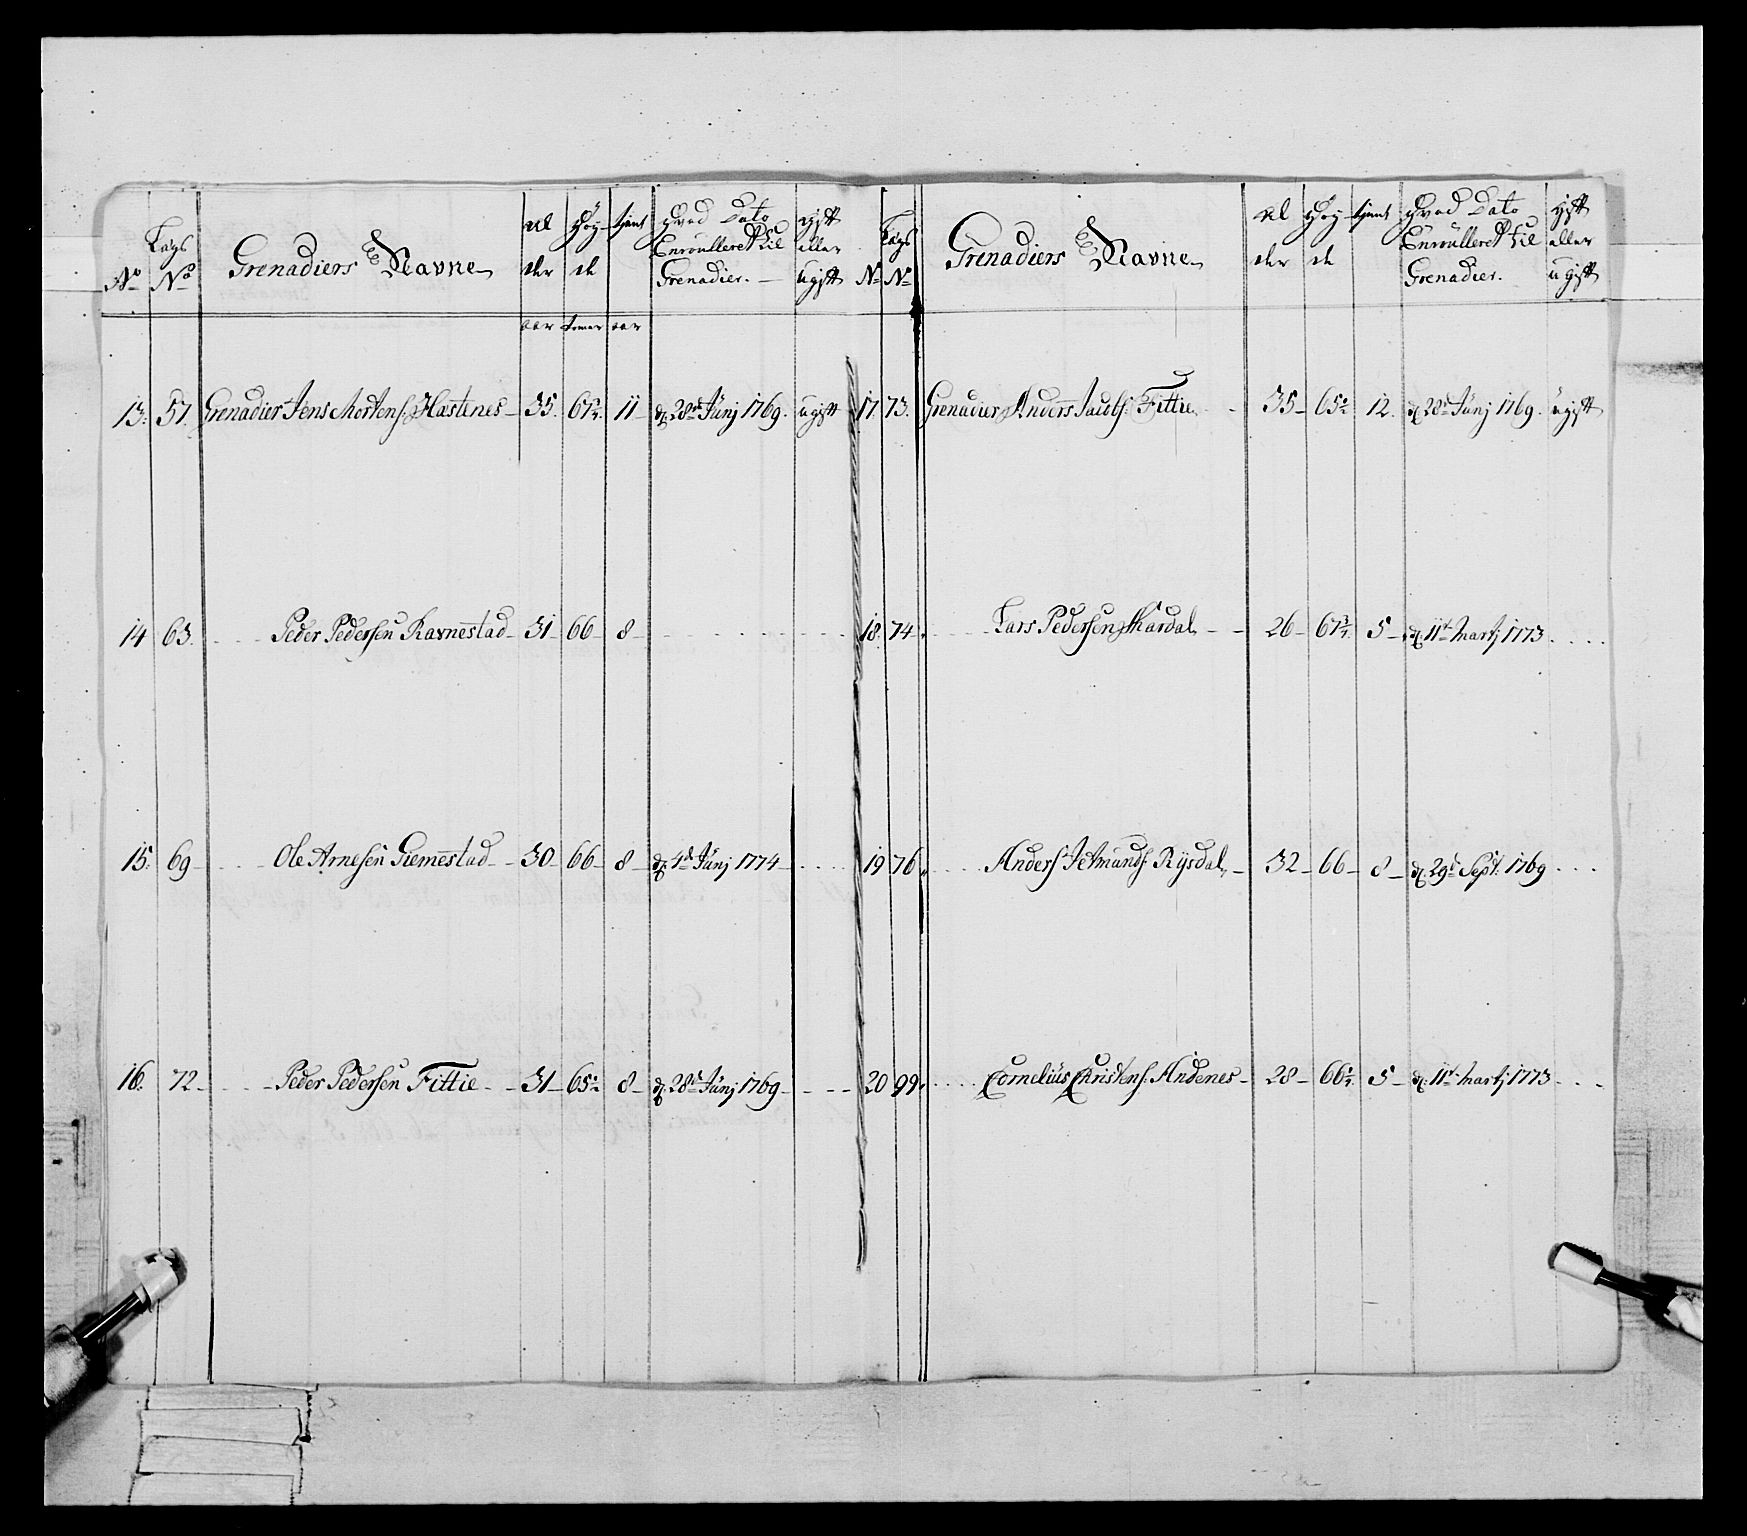 No Lægs No Grenadiers Navne Al der Høy de tient Hvad Dato Enroulleret til Grenadier. gift eller ugift
aar tomer aar
13. 57. Grenadier Jens Mortens: Hæstenes 35. 67 11 d. 28de Junj 1769. ugift
14 63. Peder Pedersen Ravnestad 31 66 8
15. 69 Ole Arnesen Giemestad 30 66 8 d. 4de Junj 1774
16. 72 Peder Pedersen Fittie 31 65 8 d. 28de Junj 1769
No Lægs No Grenadiers Navne Al der Høy de tient Hvad Dato Enroulleret til Grenadier. gift eller ugift
17. 73. Grenadier Anders Fittie 35 65 12. d. 28de Junj 1769. ugift
18. 74 Lars Pedersen Skardal 26 67 5 d. 11te Martj 1773
19 76 Anders Rysdal 32 66 8 d. 29de Sept: 1769
20 99 Cornelius Christens: Andenes 28 66 5 d. 11te Martj 1773